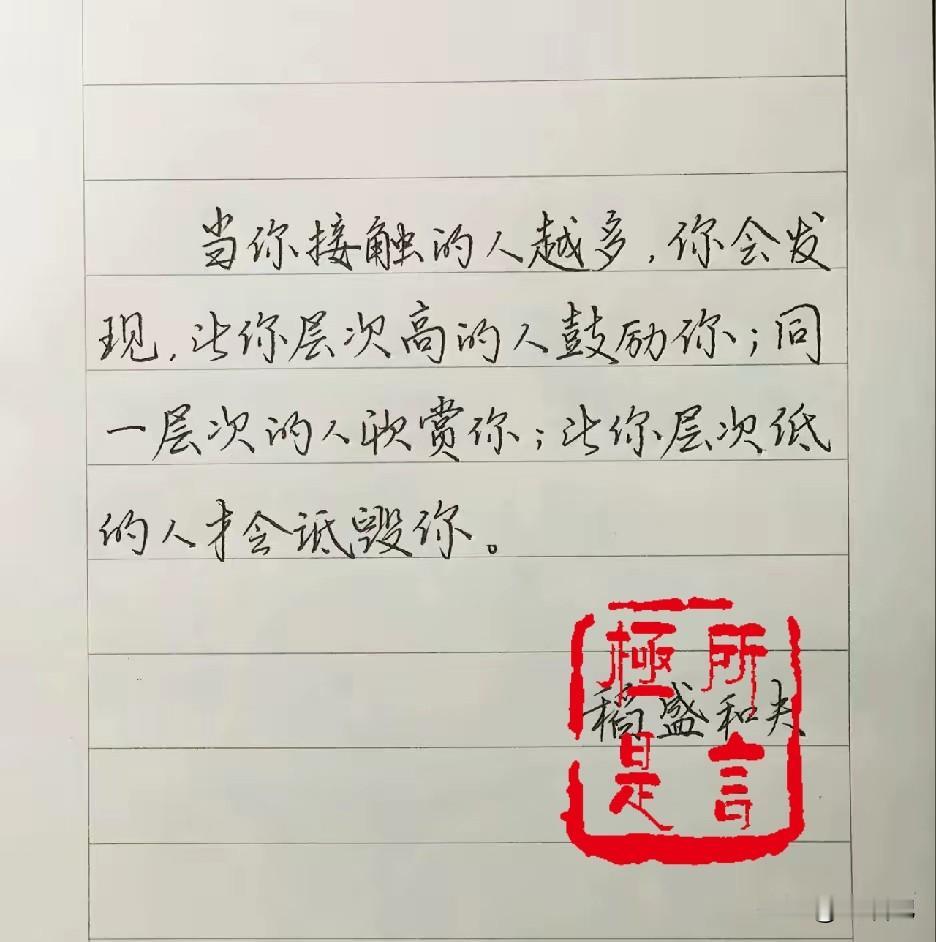 当你接触的人越多，你会发
现，比你层次高的人鼓励你；同
一层次的人欣赏你；比你层次低
的人才会诋毁你。
稻盛和夫
所言
極是